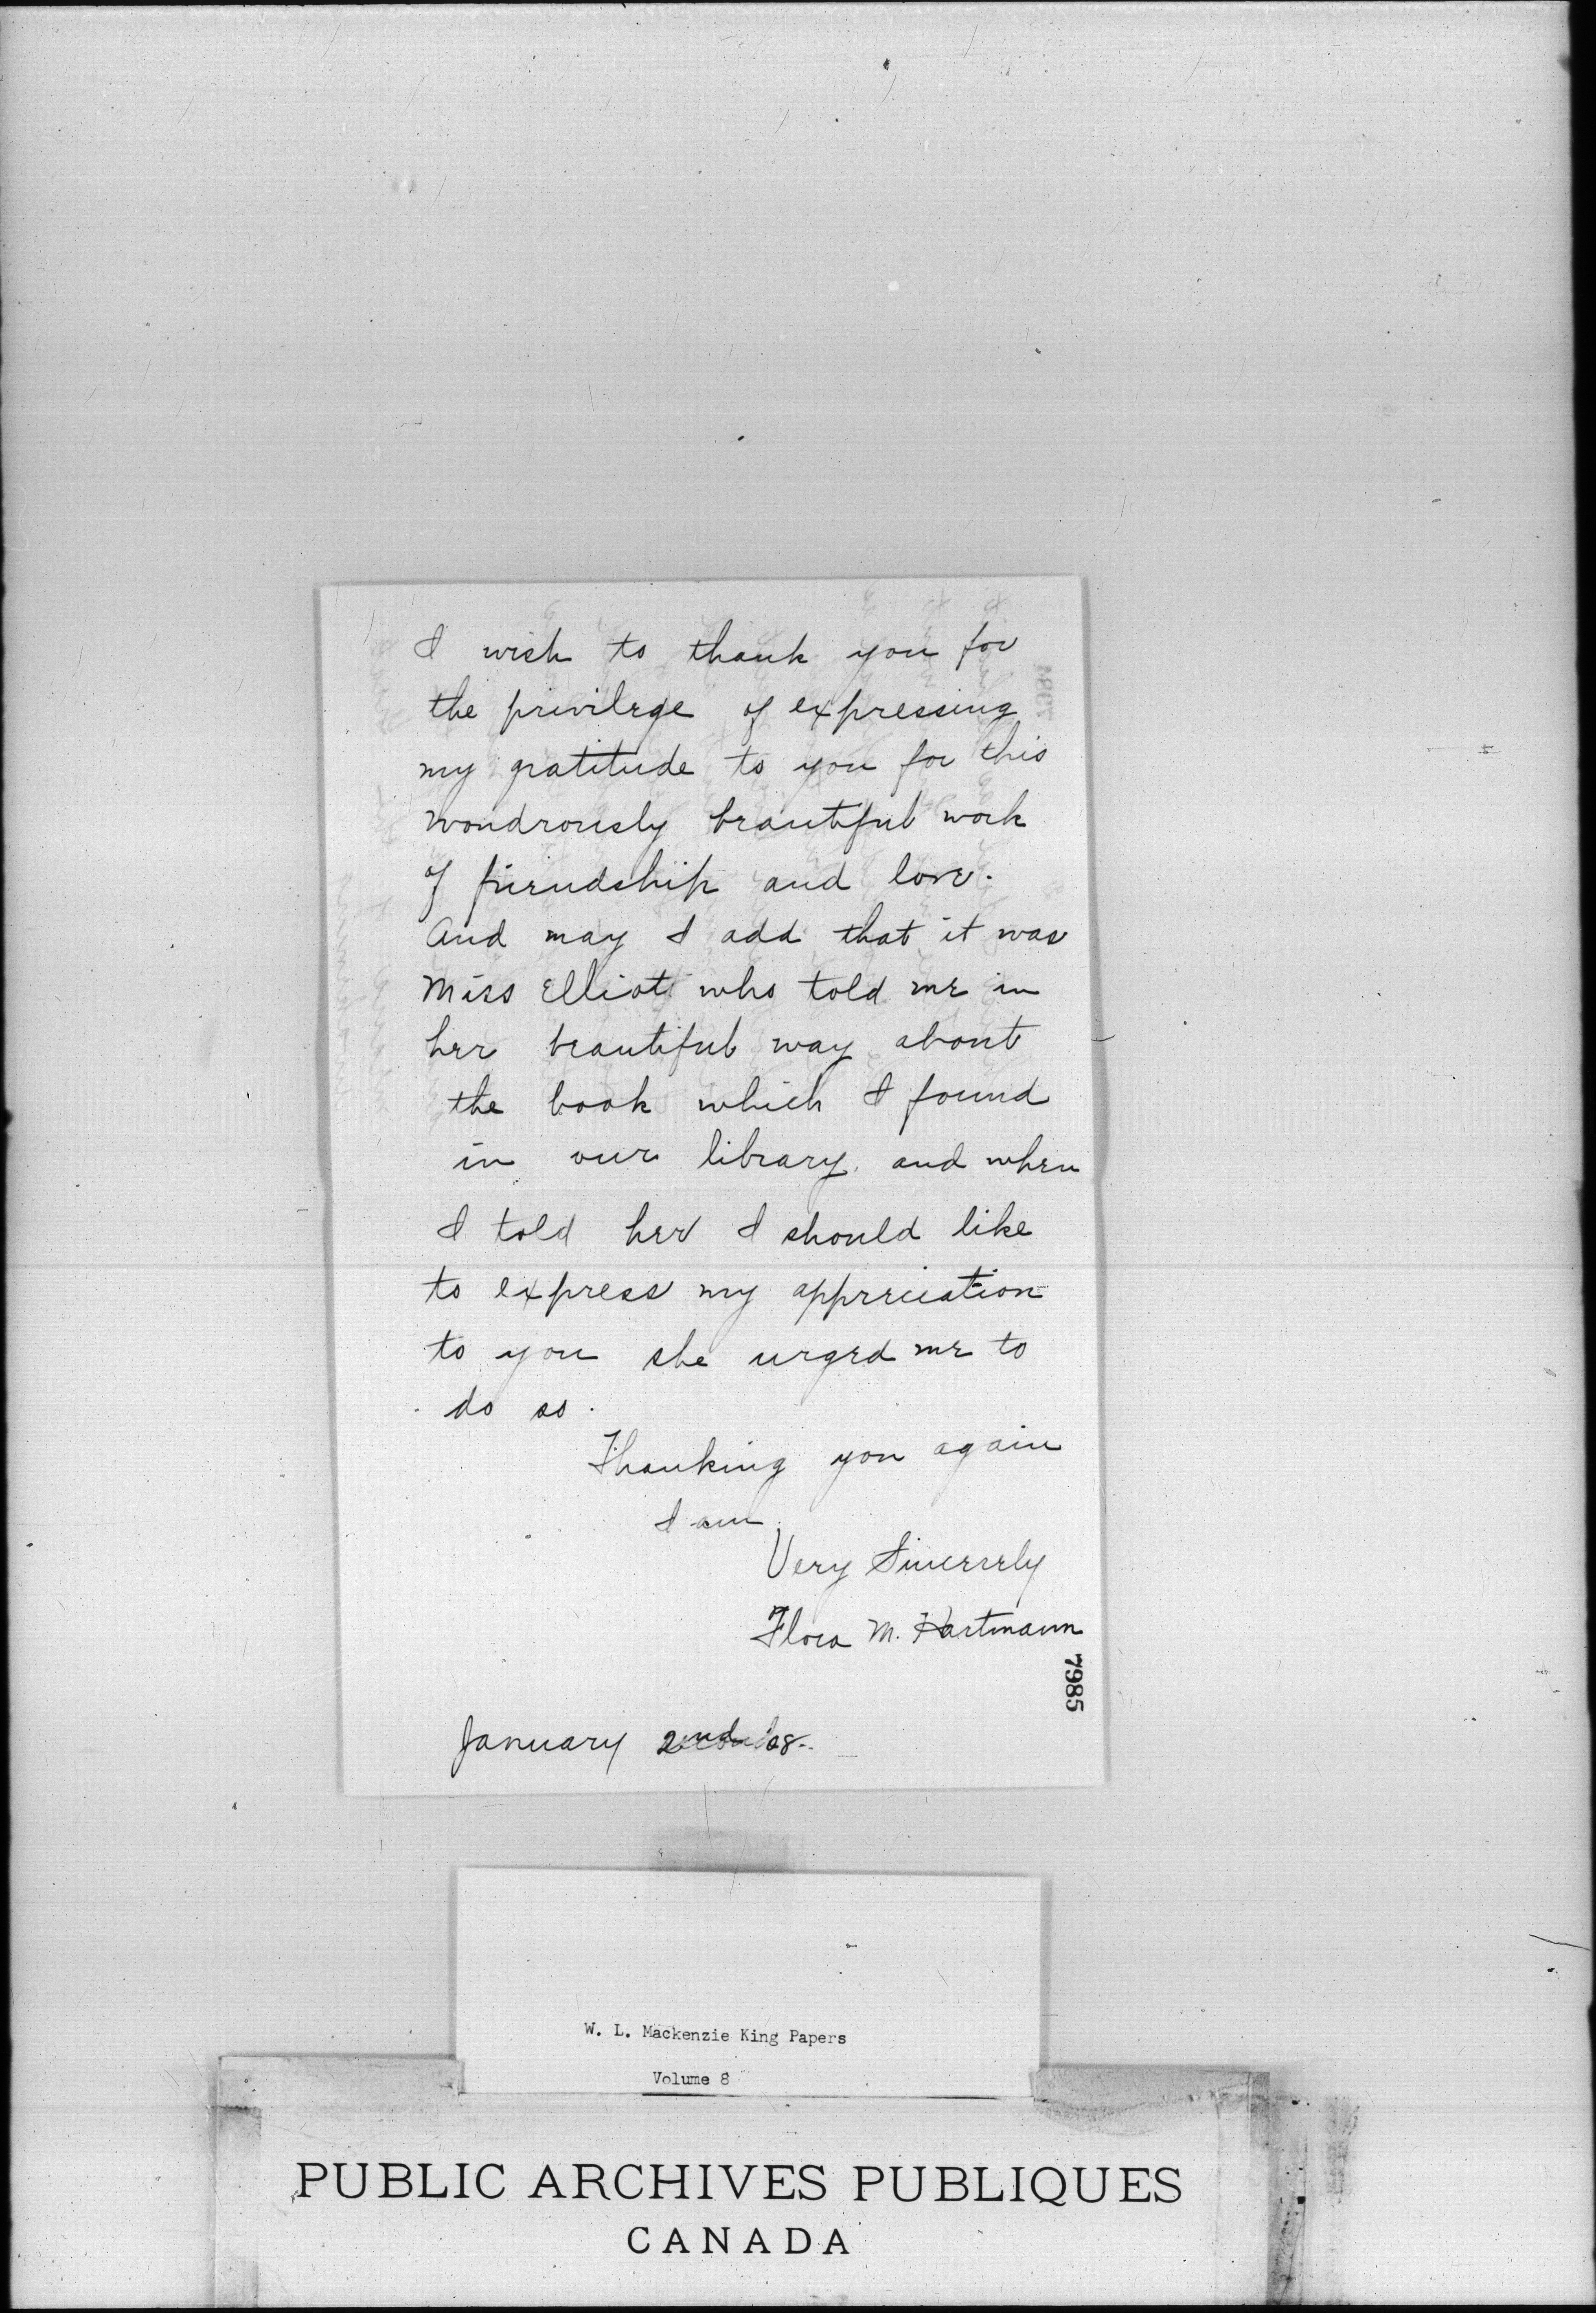 I wish to thank you for
the privilege of expressing
my gratitude to you for this
wondrously beautiful work
of friendship and love.
And may I add that it was
Miss Elliott who told me in
her beautiful way about
the book which I found
in our library, and when
I told her I should like
to express my appreciation
to you she urged me to
do so.
Thanking you again
I am,
Very Sincerely
Flora M. Hartmann
7985
January 2nd 08.
W. L. Mackenzie King Papers
Volume 8
PUBLIC ARCHIVES PUBLIQUES
CANADA